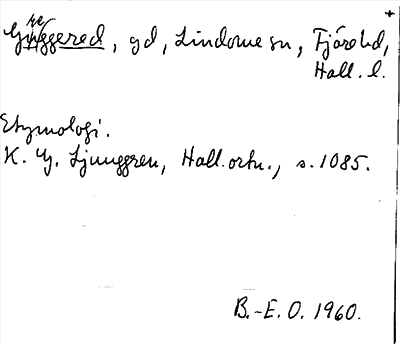 Greggered, gd, Lindome sn, Fjäre hd,
Hall. l.
Etymologi.
K. G. Ljunggren, Hall. ortn., s. 1085.
B.-E. O. 1960.